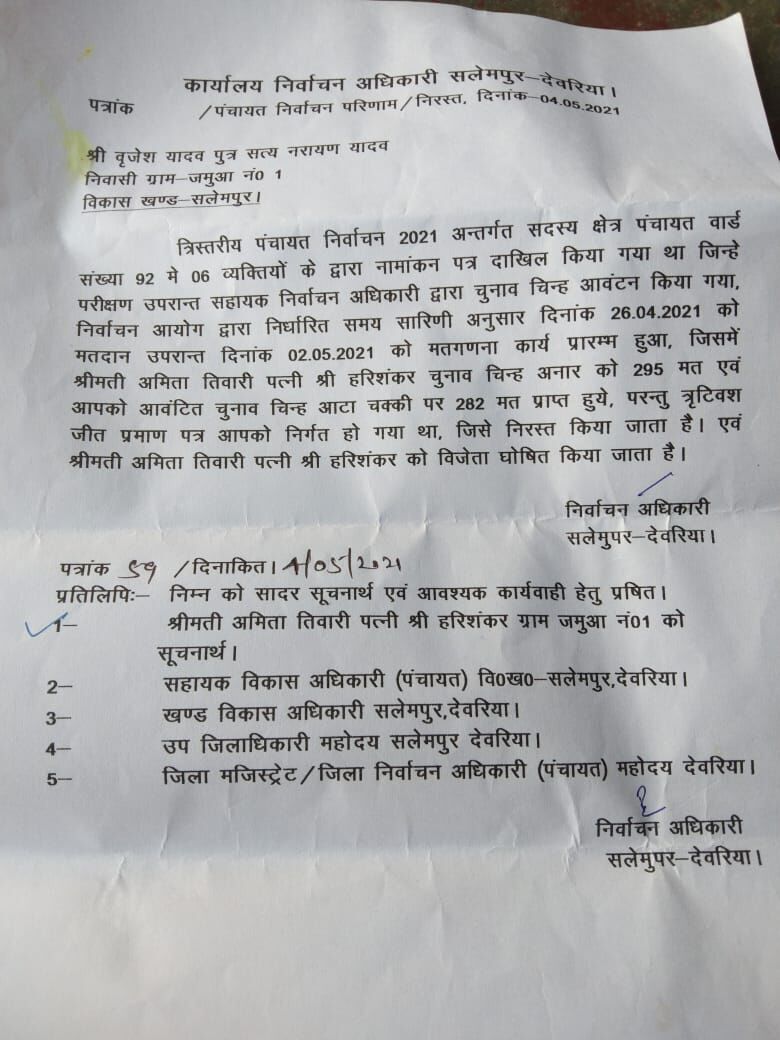 कार्यालय निर्वाचन अधिकारी सलेमपुर–देवरिया।
पत्रांक /पंचायत निर्वाचन परिणाम/निरस्त, दिनांक–04.05.2021
श्री वृजेश यादव पुत्र सत्य नरायण यादव
निवासी ग्राम–जमुआ नं0 1
विकास खण्ड–सलेमपुर।
त्रिस्तरीय पंचायत निर्वाचन 2021 अन्तर्गत सदस्य क्षेत्र पंचायत वार्ड
संख्या 92 मे 06 व्यक्तियों के द्वारा नामांकन पत्र दाखिल किया गया था जिन्हे
परीक्षण उपरान्त सहायक निर्वाचन अधिकारी द्वारा चुनाव चिन्ह आवंटन किया गया,
निर्वाचन आयोग द्वारा निर्धारित समय सारिणी अनुसार दिनांक 26.04.2021 को
मतदान उपरान्त दिनांक 02.05.2021 को मतगणना कार्य प्रारम्भ हुआ, जिसमें
श्रीमती अमिता तिवारी पत्नी श्री हरिशंकर चुनाव चिन्ह अनार को 295 मत एवं
आपको आवंटित चुनाव चिन्ह आटा चक्की पर 282 मत प्राप्त हुये, परन्तु त्रृटिवश
जीत प्रमाण पत्र आपको निर्गत हो गया था, जिसे निरस्त किया जाता है। एवं
श्रीमती अमिता तिवारी पत्नी श्री हरिशंकर को विजेता घोषित किया जाता है।
निर्वाचन अधिकारी
सलेमुपर–देवरिया।
पत्रांक 59 /दिनाकित। 4/05/2021
प्रतिलिपिः– निम्न को सादर सूचनार्थ एवं आवश्यक कार्यवाही हेतु प्रषित।
1– श्रीमती अमिता तिवारी पत्नी श्री हरिशंकर ग्राम जमुआ नं01 को
सूचनार्थ।
2– सहायक विकास अधिकारी (पंचायत) वि0ख0–सलेमपुर,देवरिया।
3– खण्ड विकास अधिकारी सलेमपुर,देवरिया।
4– उप जिलाधिकारी महोदय सलेमपुर देवरिया।
5– जिला मजिस्ट्रेट/जिला निर्वाचन अधिकारी (पंचायत) महोदय देवरिया।
निर्वाचन अधिकारी
सलेमुपर–देवरिया।